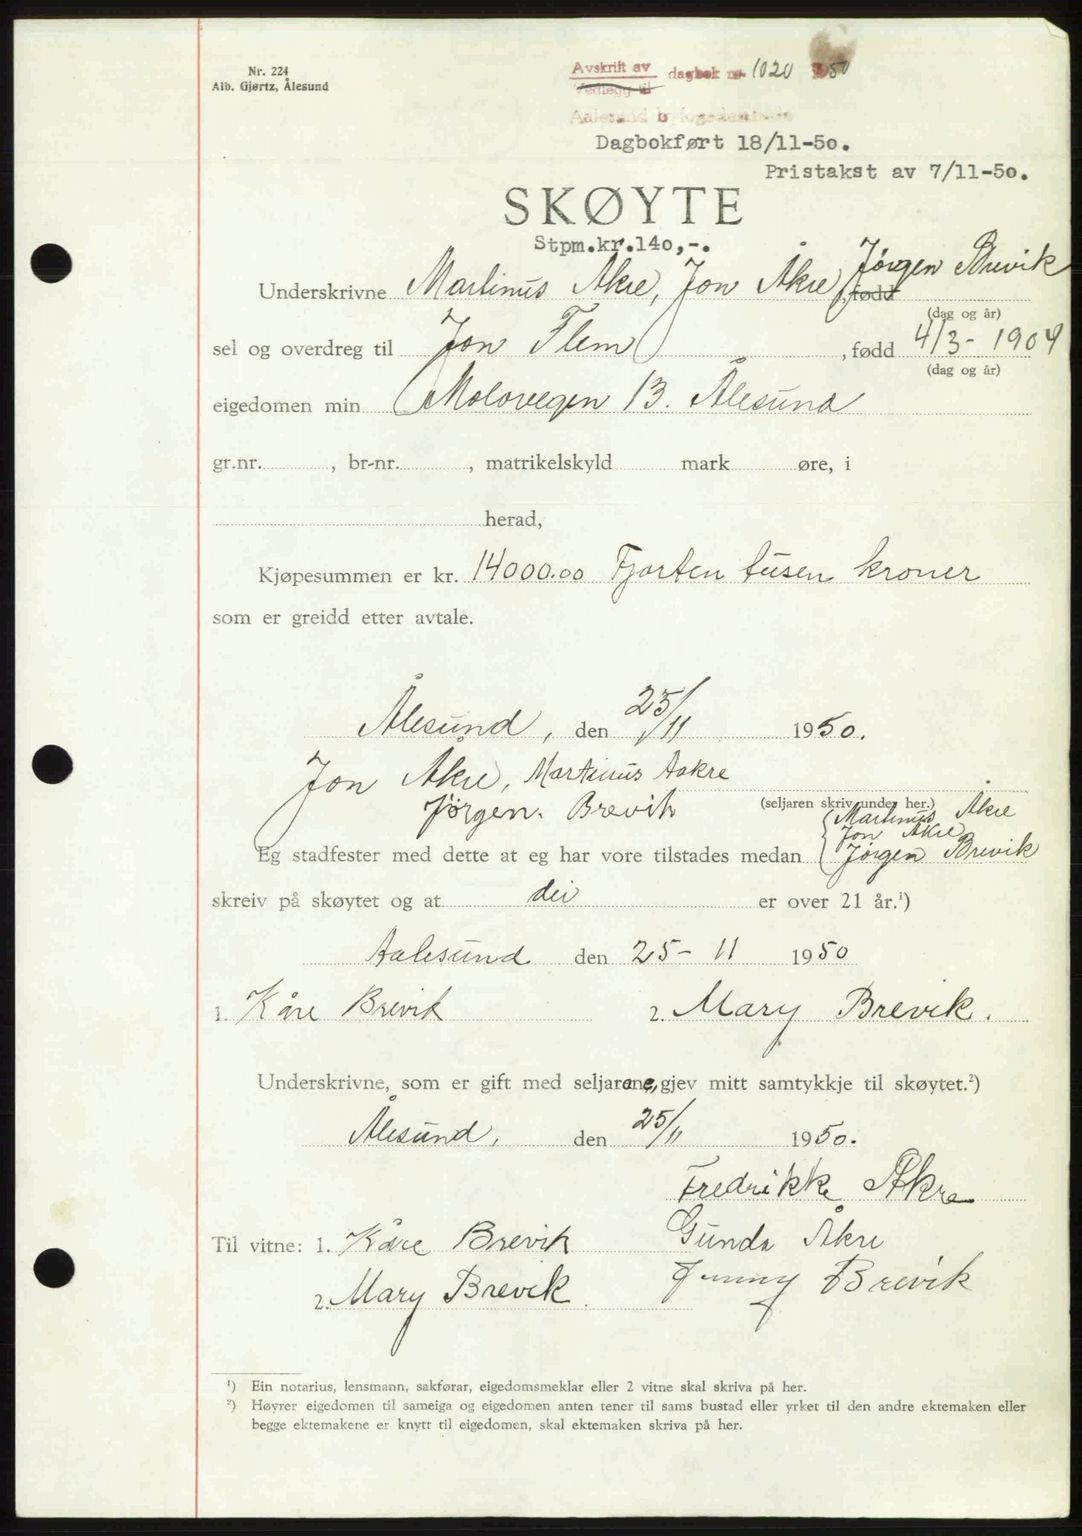 Nr. 224
Alb. Gjørtz, Ålesund
Avskrift av
Vedlegg til
dagbok nr. 1020 50
Aalesund byfogdembede
Dagbokført 18/11-50.
Pristakst av 7/11-50.
SKØYTE
Stpm.kr.140,-.
Underskrivne Martinus Åkre, Jon Åkre, Jørgen Brevik født
(dag og år)
sel og overdreg til Jon Flem , fødd 4/3- 1904
(dag og år)
eigedomen min Molovegen 13. Ålesund
gr.nr. , br-nr. , matrikelskyld mark øre, i
herad,
Kjøpesummen er kr. 14000.00 Fjorten tusen kroner
som er greidd etter avtale.
Ålesund, den 25/11 1950.
Jon Åkre, Martinus Aakre
Jørgen. Brevik
(seljaren skriv under her.)
Martinus Åkre
Jon Åkre
Eg stadfester med dette at eg har vore tilstades medan Jørgen Brevik
skreiv på skøytet og at dei er over 21 år.¹)
Aalesund den 25- 11 1950
1. Kåre Brevik 2. Mary Brevik.
Underskrivne, som er gift med seljarane, gjev mitt samtykkje til skøytet.²)
Ålesund, den 25/11 1950.
Fredrikke Åkre
Til vitne: 1. Kåre Brevik Gunda Åkre
2. Mary Brevik Jenny Brevik
¹) Ein notarius, lensmann, sakførar, eigedomsmeklar eller 2 vitne skal skriva på her.
²) Høyrer eigedomen til sameiga og eigedomen anten tener til sams bustad eller yrket til den andre ektemaken eller
begge ektemakene er knytt til eigedomen, skal ektemaken skriva på her.